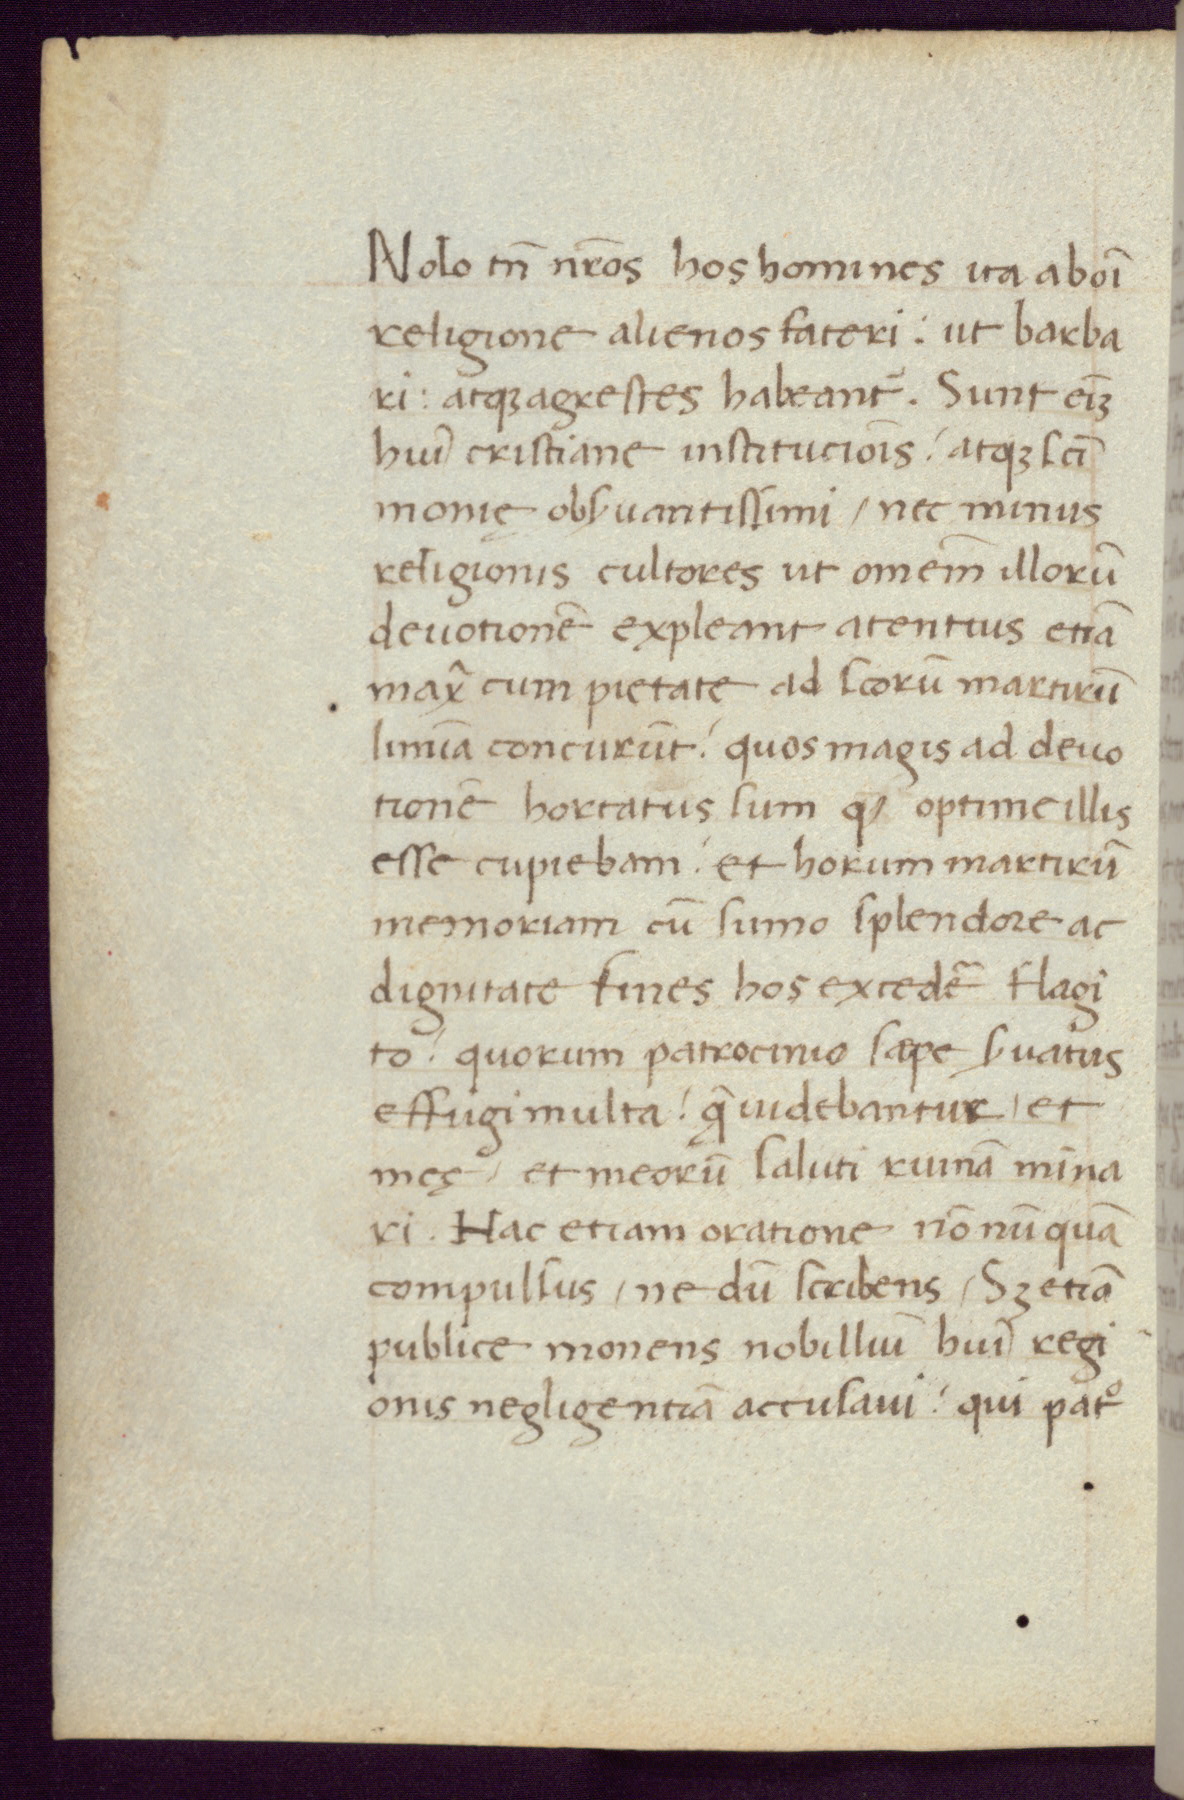 Nolo tn̄ nr̄os hos homines ita ab oī
religione alienos fateri: ut barba
ri: atqꝫ agrestes habeant᷑. Sunt eīꝫ
huiꝰ cristiane institucioīs: atqꝫ scī
monię obẜuantissimi / nec minus
religionis cultores ut omnem̄ illorū
deuotionē expleant atentius etiā
max̄ cum pietate ad sc̄orū martirū
limīa concurūt: quos magis ad deuo
tionē hortatus sum qꝫ optime illis
esse cupiebam: et horum martirū
memoriam cū sumo splendore ac
dignitate fines hos excedē᷑ flagi
to: quorum patrocinio sæpe ẜuatus
effugi multa: q̄ uidebantur / et
meę / et meorū saluti ruinā mina
ri. Hac etiam oratione nō nū quā
compulsus / ne dū scribens / Sꝫ etiā
publice monens nobilliū huiꝰ regi
onis negligentiā accusaui: qui patº